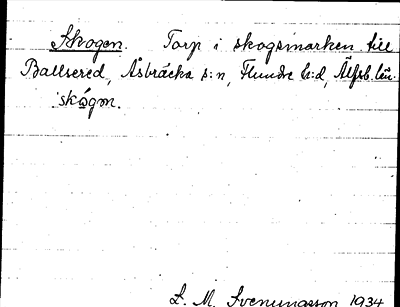 Skogen. Torp i skogsmarken till
Ballsered, Åsbräcka s:n, Flundre h:d, Älfsb. län.
skógən.
S. M. Svenungsson 1934